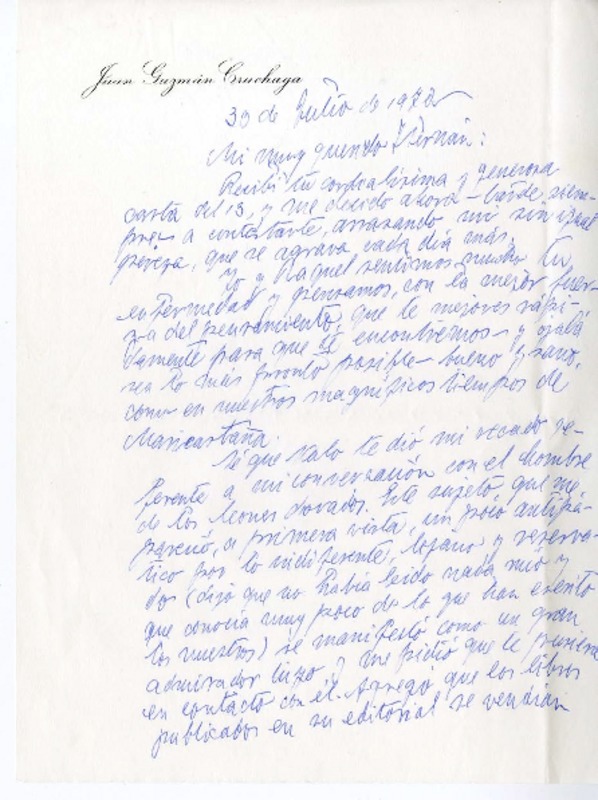 Juan Guzmán Cruchaga
30 de Julio de 1972
Mi muy querido Hernán:
Recibí tu cordialísima y generosa
carta del 13, y me decido ahora - tarde siem-
pre - a contestarte, arrasando mi sin igual
pereza, que se agrava cada día más.
Yo y Raquel sentimos mucho tu
enfermedad y pensamos, con la mejor fuer-
za del pensamiento, que te mejores rápi-
damente para que te encontremos - y ojalá
sea lo más pronto posible - bueno y sano,
como en nuestros magníficos tiempos de
Maricastaña.
Sé que Lalo te dió mi recado re-
ferente a mi conversación con el hombre
de los leones dorados. Este sujeto, que me
pareció, a primera vista, un poco antipá-
tico por lo indiferente, lejano y reserva-
do (dijo que no había leido nada mío y
que conocía muy poco de lo que han escrito
los nuestros) se manifestó como un gran
admirador tuyo y me pidió que le pusiera
en contacto con él. Agregó que los libros
publicados en su editorial se vendían